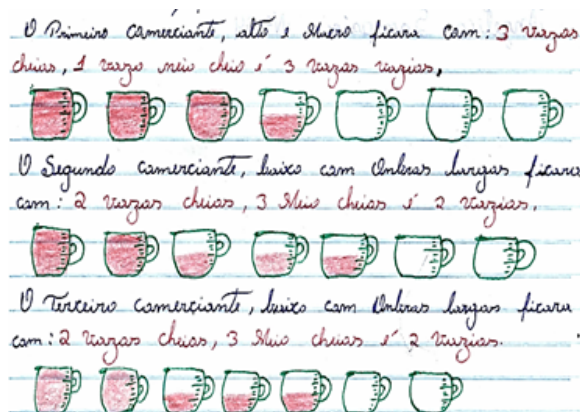 O Primeiro comerciante, alto e Macro ficara com: 3 vazas
cheias, 1 vazo meio cheio é 3 vazas vazias,
O Segundo comerciante, baixo com Ombras largas ficara
com: 2 vazas cheias, 3 Meio cheias é 2 vazias.
O Terceiro comerciante, baixo com Ombras largas ficara
com: 2 vazas cheias, 3 Meio cheias é 2 vazias.